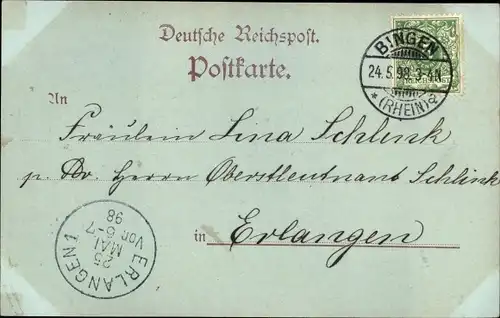 Deutsche Reichspost.
Postkarte.
BINGEN
24.5.98.3-4N
* (RHEIN) 2
An
Fräulein Lina Schlenk
p. Adr. Herrn Oberstleutnant Schlenk
in Erlangen
ERLANGEN 1
25
MAI
Vor. 6-7
98